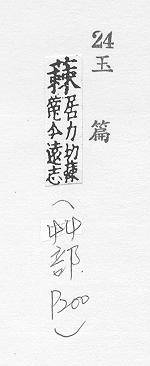 24 玉篇
蕀 居力切蕀
菀今遠志
(艸部 P200)